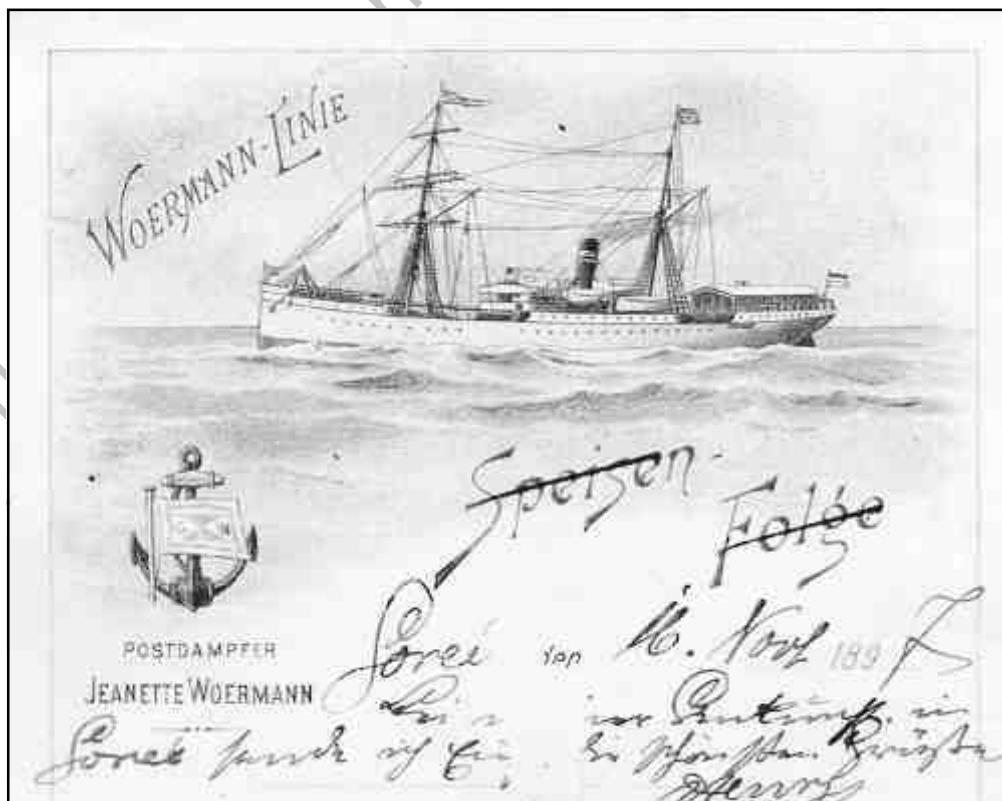 WOERMANN-LINIE
Speisen-
Folge
POSTDAMPFER
JEANETTE WOERMANN
Gorée 16. Nov 1897
Ankunft in
Gorée sende ich schönsten Grüße
Henry